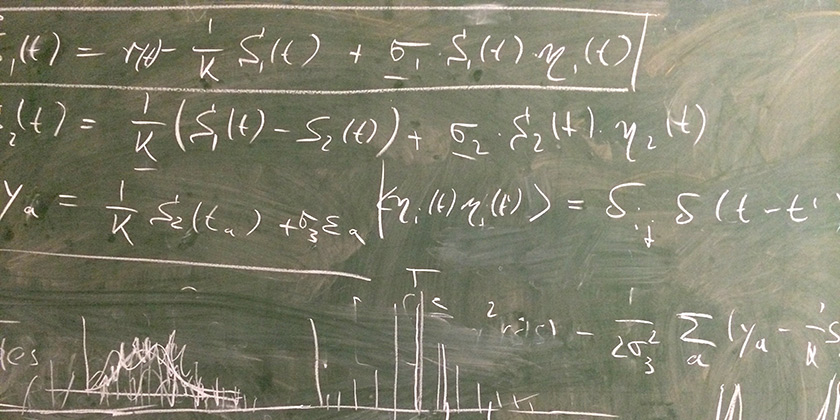 Ṡ₁(t) = r(t) - 1/K S₁(t) + σ₁ · S₁(t) · η₁(t)
Ṡ₂(t) = 1/K (S₁(t) - S₂(t)) + σ₂ · S₂(t) · η₂(t)
yₐ = 1/K S₂(tₐ) + σ₃ εₐ
⟨ηᵢ(t) ηⱼ(t')⟩ = δᵢⱼ δ(t-t'
- 1/2σ₃² Σₐ (yₐ - 1/K S